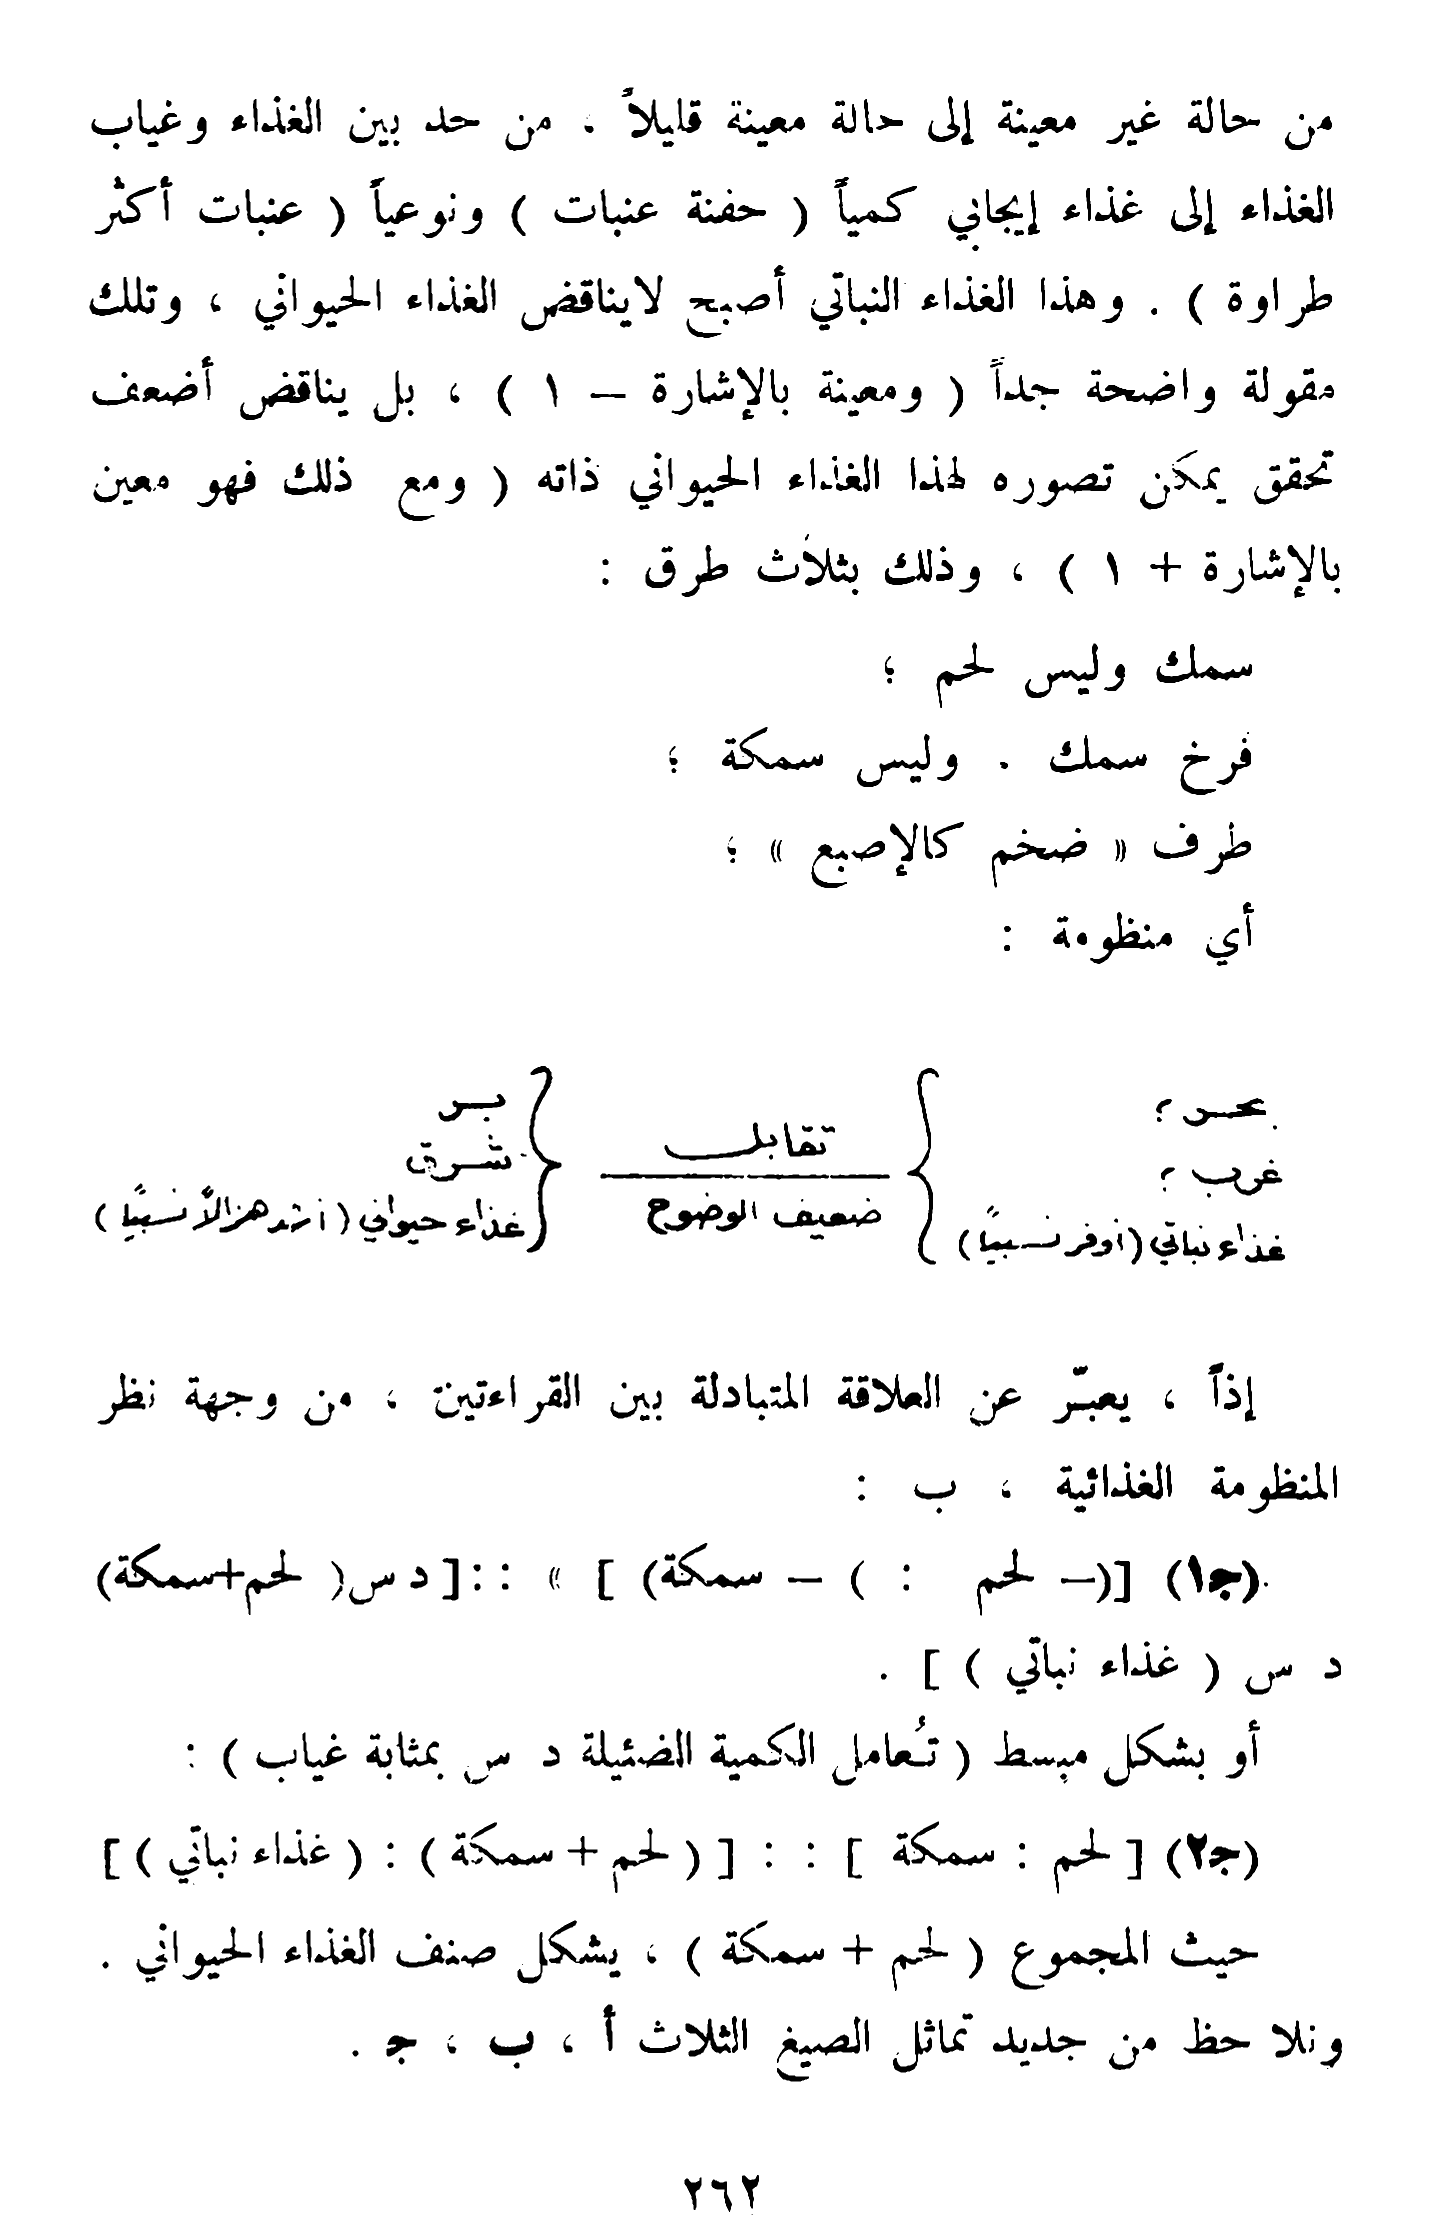 من حالة غير معينة إلى حالة معينة قليلاً ، من حد بين الغذاء وغياب
الغذاء إلى غذاء إيجابي كمياً ( حفنة عنبات ) ونوعياً ( عنبات أكثر
طراوة ) . وهذا الغذاء النباتي أصبح لايناقض الغذاء الحيواني ، وتلك
مقولة واضحة جداً ( ومعينة بالإشارة – ١ ) ، بل يناقض أضعف
تحقق يمكن تصوره لهذا الغذاء الحيواني ذاته ( ومع ذلك فهو معين
بالإشارة + ١ ) ، وذلك بثلاث طرق :
سمك وليس لحم ؛
فرخ سمك . وليس سمكة ؛
طرف « ضخم كالإصبع » ؛
أي منظومة :
بحر ؟
غرب ؟
غذاء نباتي (أوفر نسبيًا)
تقابل
ضعيف الوضوح
بر
شرق
غذاء حيواني (أشد هزالاً نسبيًا)
إذاً ، يعبّر عن العلاقة المتبادلة بين القراءتين ، من وجهة نظر
المنظومة الغذائية ، ب :
(ج١) [(– لحم : ) – سمكة) ] » : :[ د س( لحم+سمكة)
د س ( غذاء نباتي ) ] .
أو بشكل مبسط ( تُعامل الكمية الضئيلة د س بمثابة غياب ) :
(ج٢) [ لحم : سمكة ] : : [ ( لحم + سمكة ) : ( غذاء نباتي ) ]
حيث المجموع ( لحم + سمكة ) ، يشكل صنف الغذاء الحيواني .
ونلا حظ من جديد تماثل الصيغ الثلاث أ ، ب ، ج .
٢٦٢